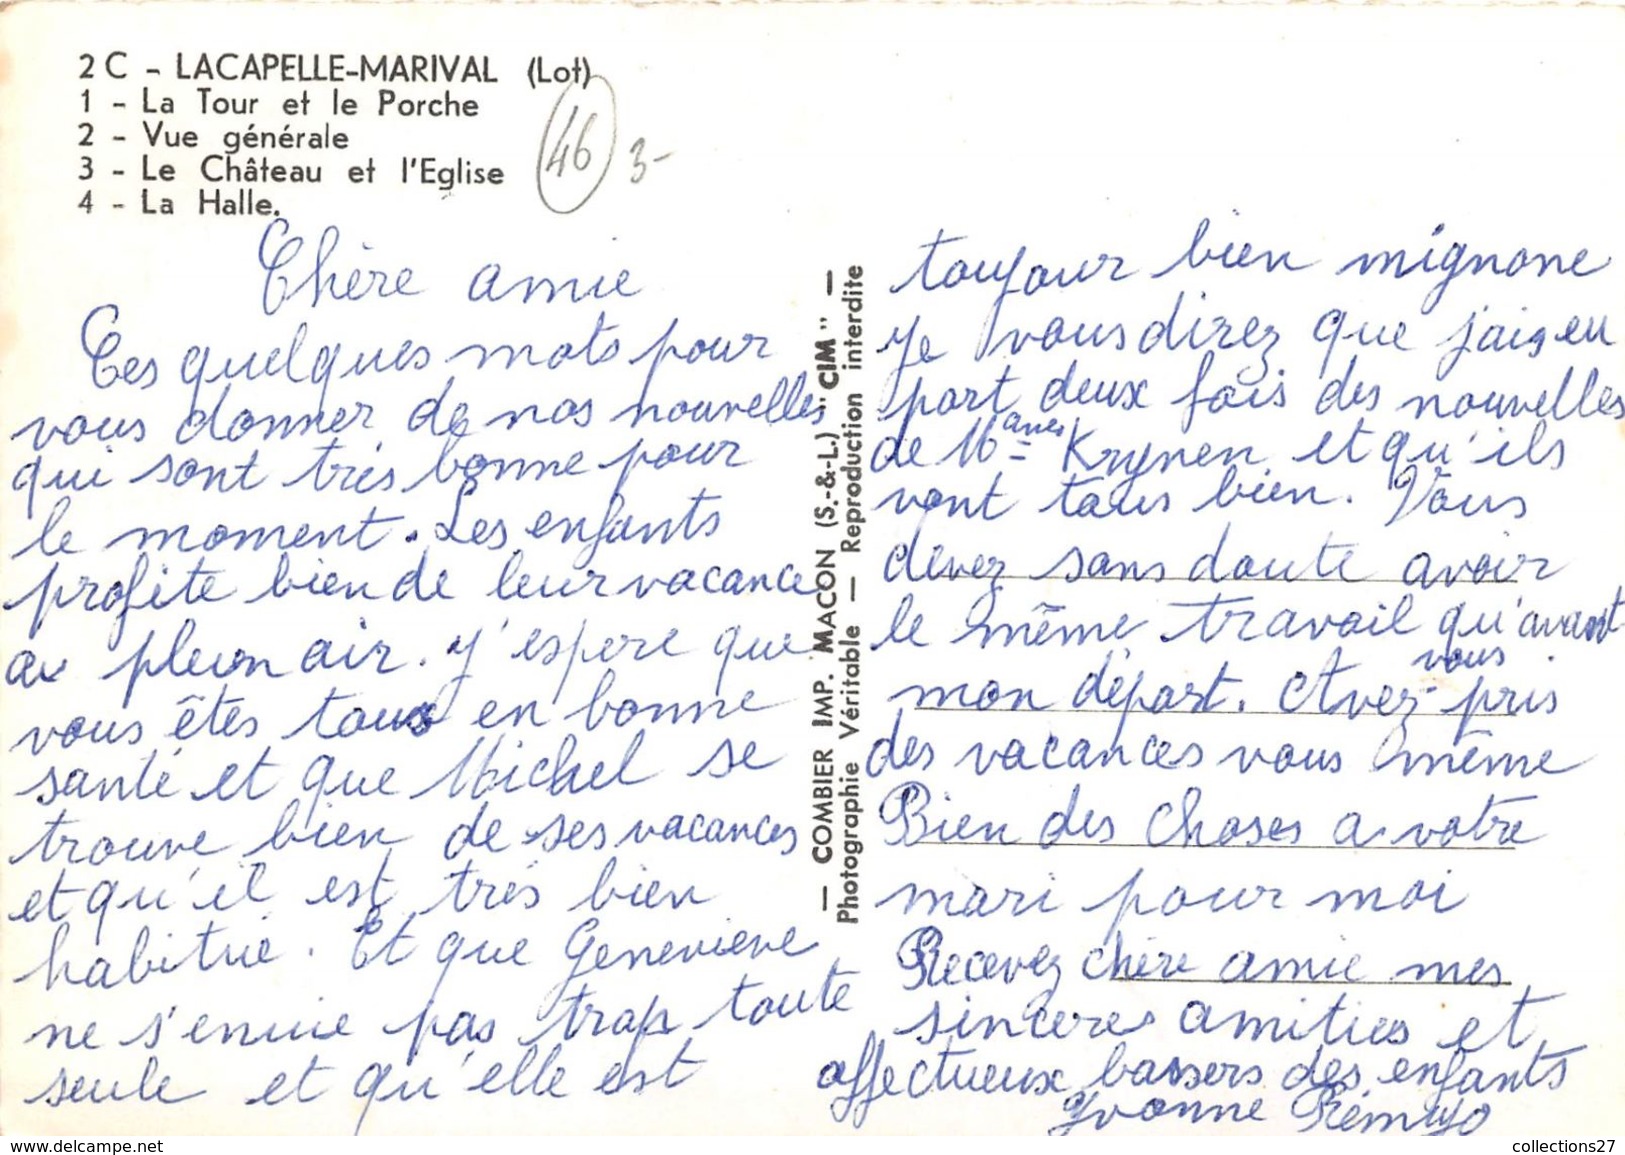 2 C - LACAPELLE-MARIVAL (Lot)
1 - La Tour et le Porche
2 - Vue générale
3 - Le Château et l'Eglise
4 - La Halle.
46
3-
Chère amie
Ces quelques mots pour
vous donner de nos nouvelles
qui sont très bonne pour
le moment. Les enfants
profite bien de leur vacance
au plein air. J'espere que
vous êtes tous en bonne
santé et que Michel se
trouve bien de ses vacances
et qu'il est très bien
habitué. Et que Geneviève
ne s'enuie pas trop toute
seule et qu'elle est
— COMBIER IMP. MACON (S.-&-L.) "CIM" —
Photographie Véritable — Reproduction interdite
toujour bien mignone
Je vous direz que j'ais eu
part deux fois des nouvelles
de Krynen et qu'ils
vont tous bien. Vous
devez sans doute avoir
le même travail qu'avant
mon départ. Avez-vous pris
des vacances vous même
Bien des choses a votre
mari pour moi
Recevez chère amie mes
sinceres amities et
affectueux baisers des enfants
Yvonne
collections27